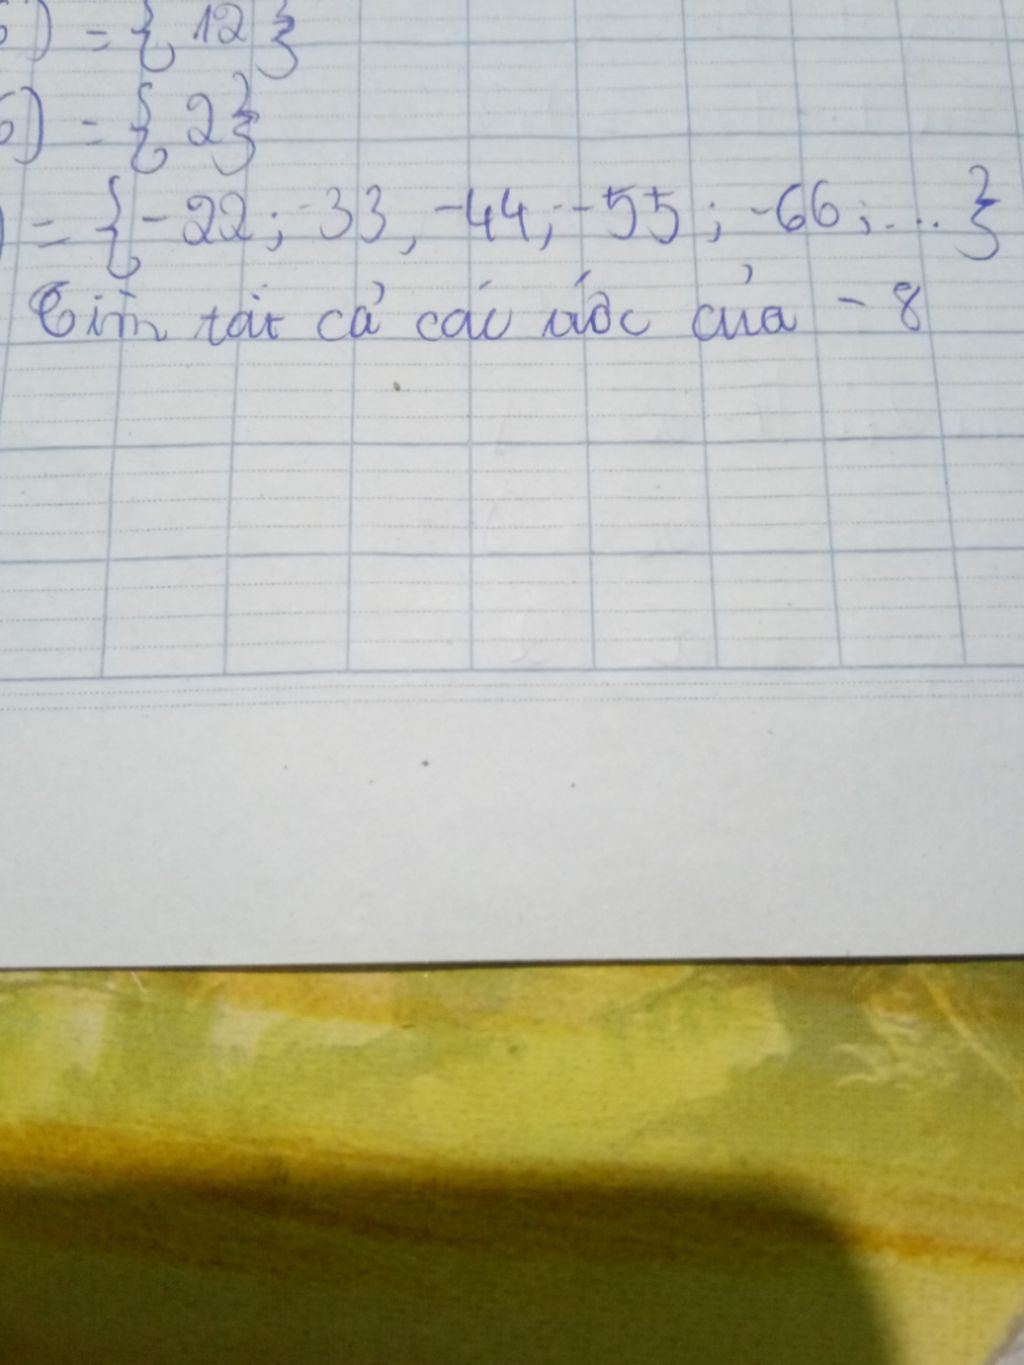 ) = { 12 }
) = { 2 }
) = { -22 ; -33 , -44 ; -55 ; -66 ; ... }
Tìm tất cả các ước của - 8